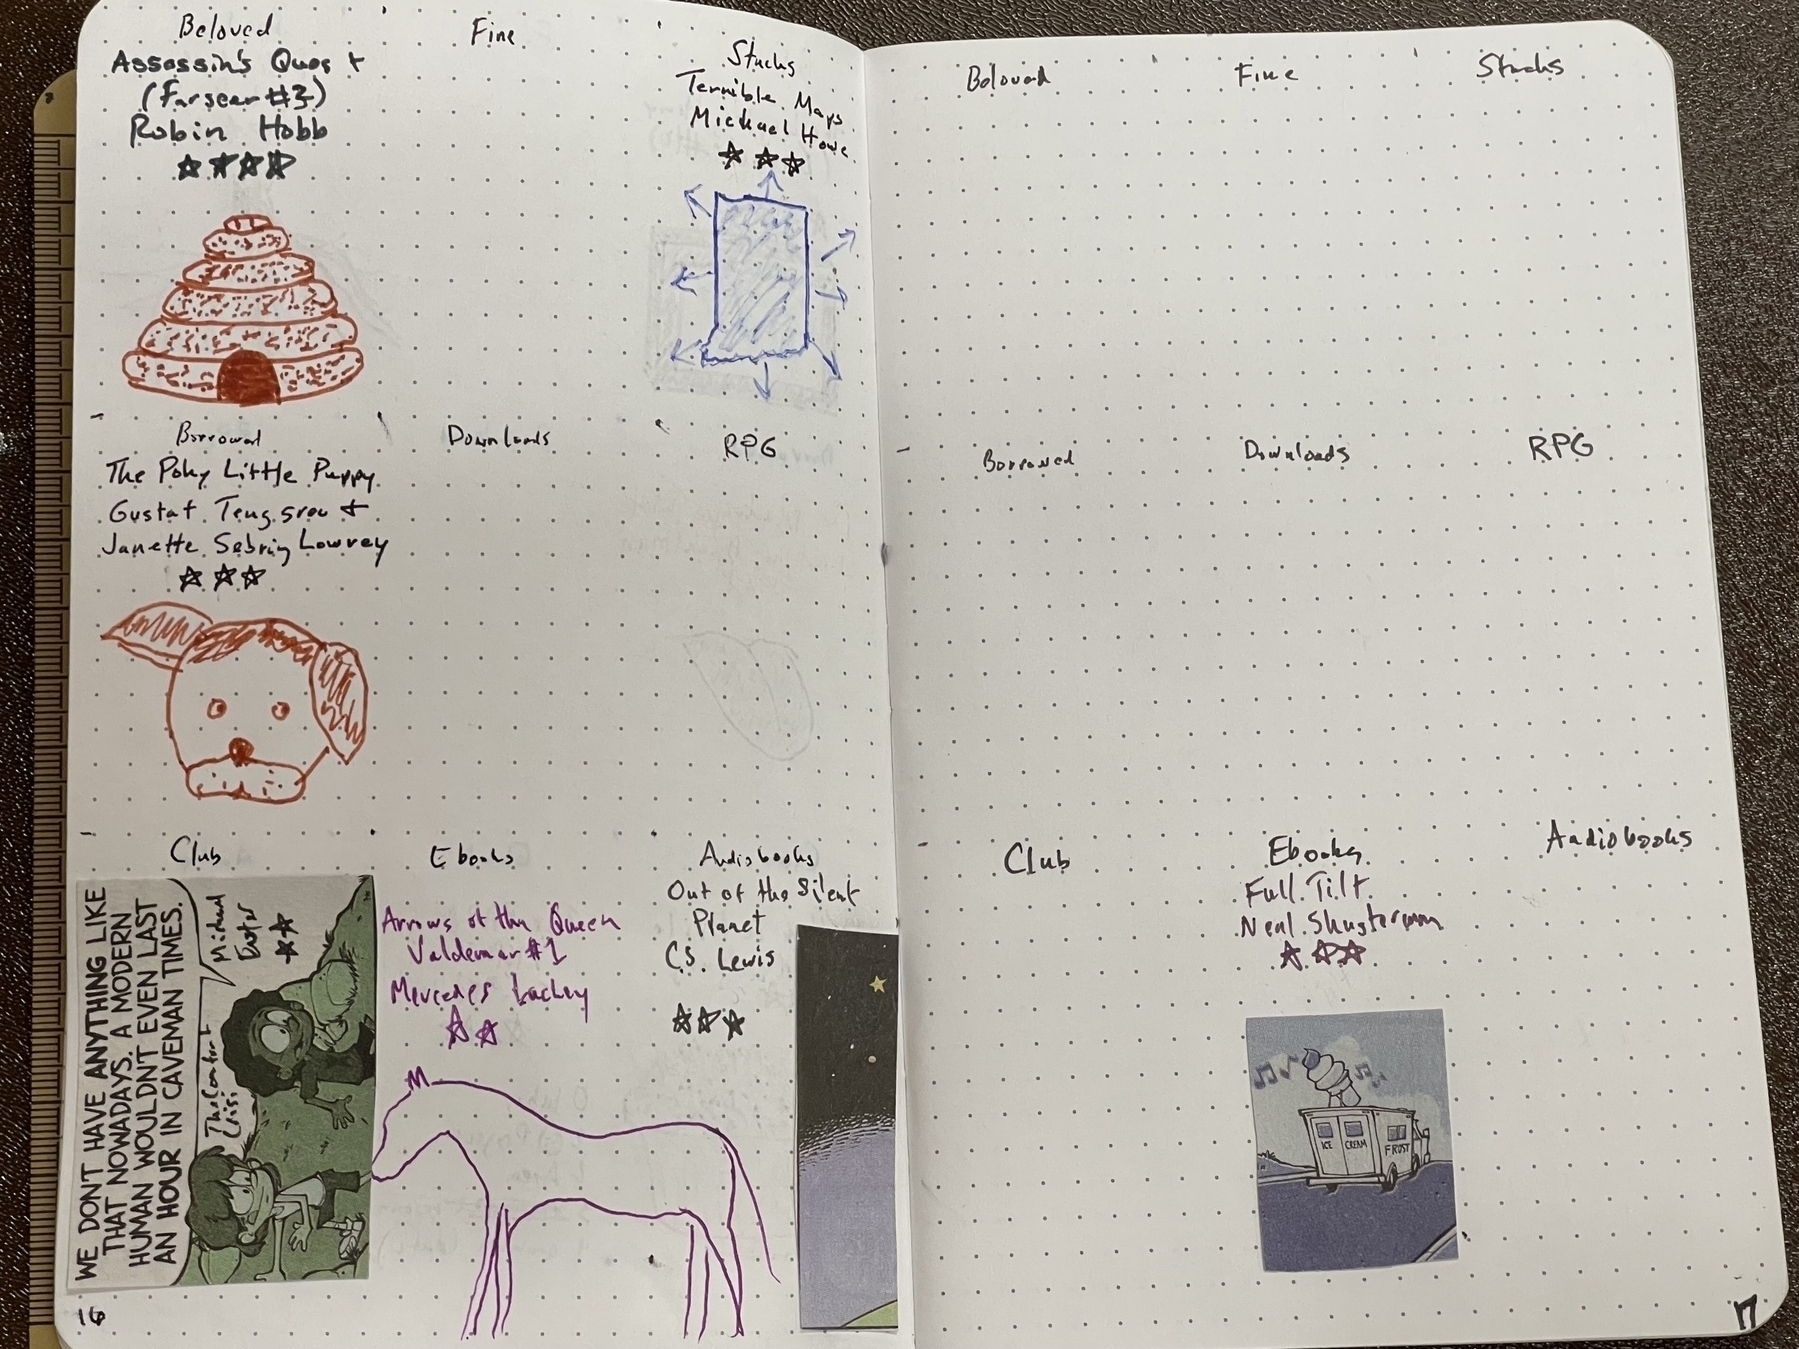 Beloved
Assassin's Quest
(Farseer #3)
Robin Hobb
Fine
Stacks
Terrible Maps
Michael Howe
Borrowed
The Poky Little Puppy
Gustaf Tenggren &
Janette Sebring Lowrey
Downloads
RPG
Club
WE DON'T HAVE ANYTHING LIKE
THAT NOWADAYS. A MODERN
HUMAN WOULDN'T EVEN LAST
AN HOUR IN CAVEMAN TIMES.
Michael
Easter
The Comfort
Crisis
Ebooks
Arrows of the Queen
Valdemar #1
Mercedes Lackey
Audiobooks
Out of the Silent
Planet
C.S. Lewis
16
Beloved
Fine
Stacks
Borrowed
Downloads
RPG
Club
Ebooks
Full Tilt
Neal Shusterman
ICE CREAM FROST
Audiobooks
17